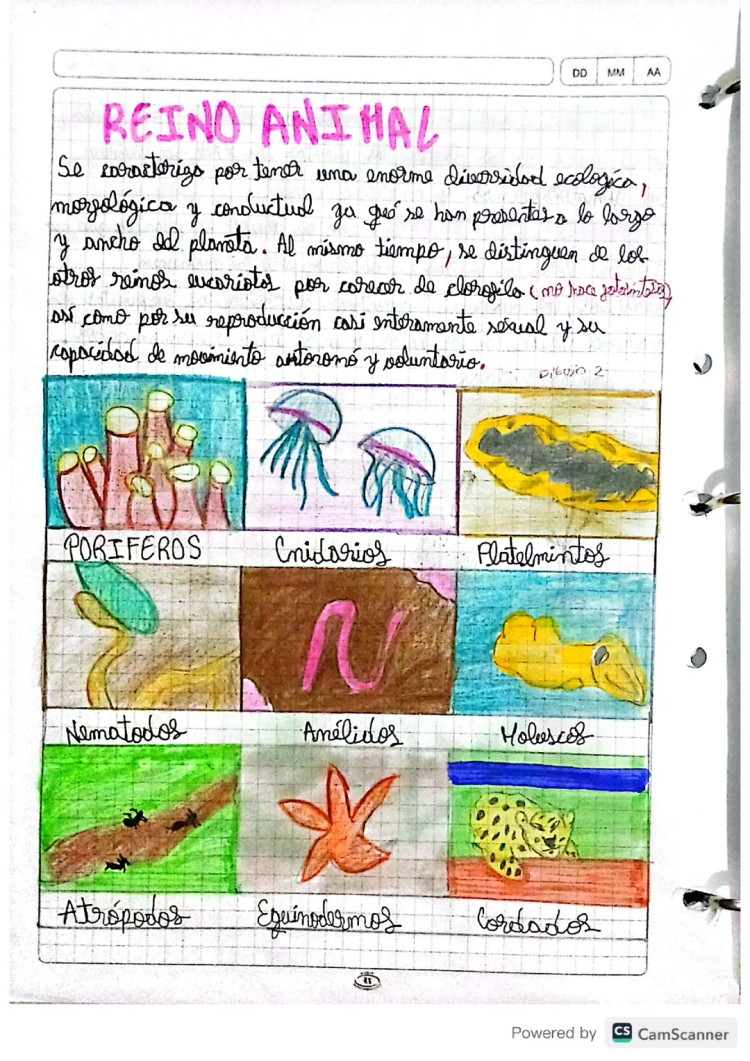 DD MM AA
REINO ANIMAL
Se caracteriza por tener una enorme diversidad ecológica,
morfológica y conductual ya que se han presentes a lo largo
y ancho del planeta. Al mismo tiempo, se distinguen de los
otros reinos eucariotas por carecer de clorofila (no hace fotosíntesis),
así como por su reproducción casi enteramente sexual y su
capacidad de movimiento autonomó y voluntario.
Dibujo 2
PORIFEROS Cnidarios Platelmintos
Nematodos Anélidos Moluscos
Atrópodos Equinodermos Cordados
Powered by CS CamScanner